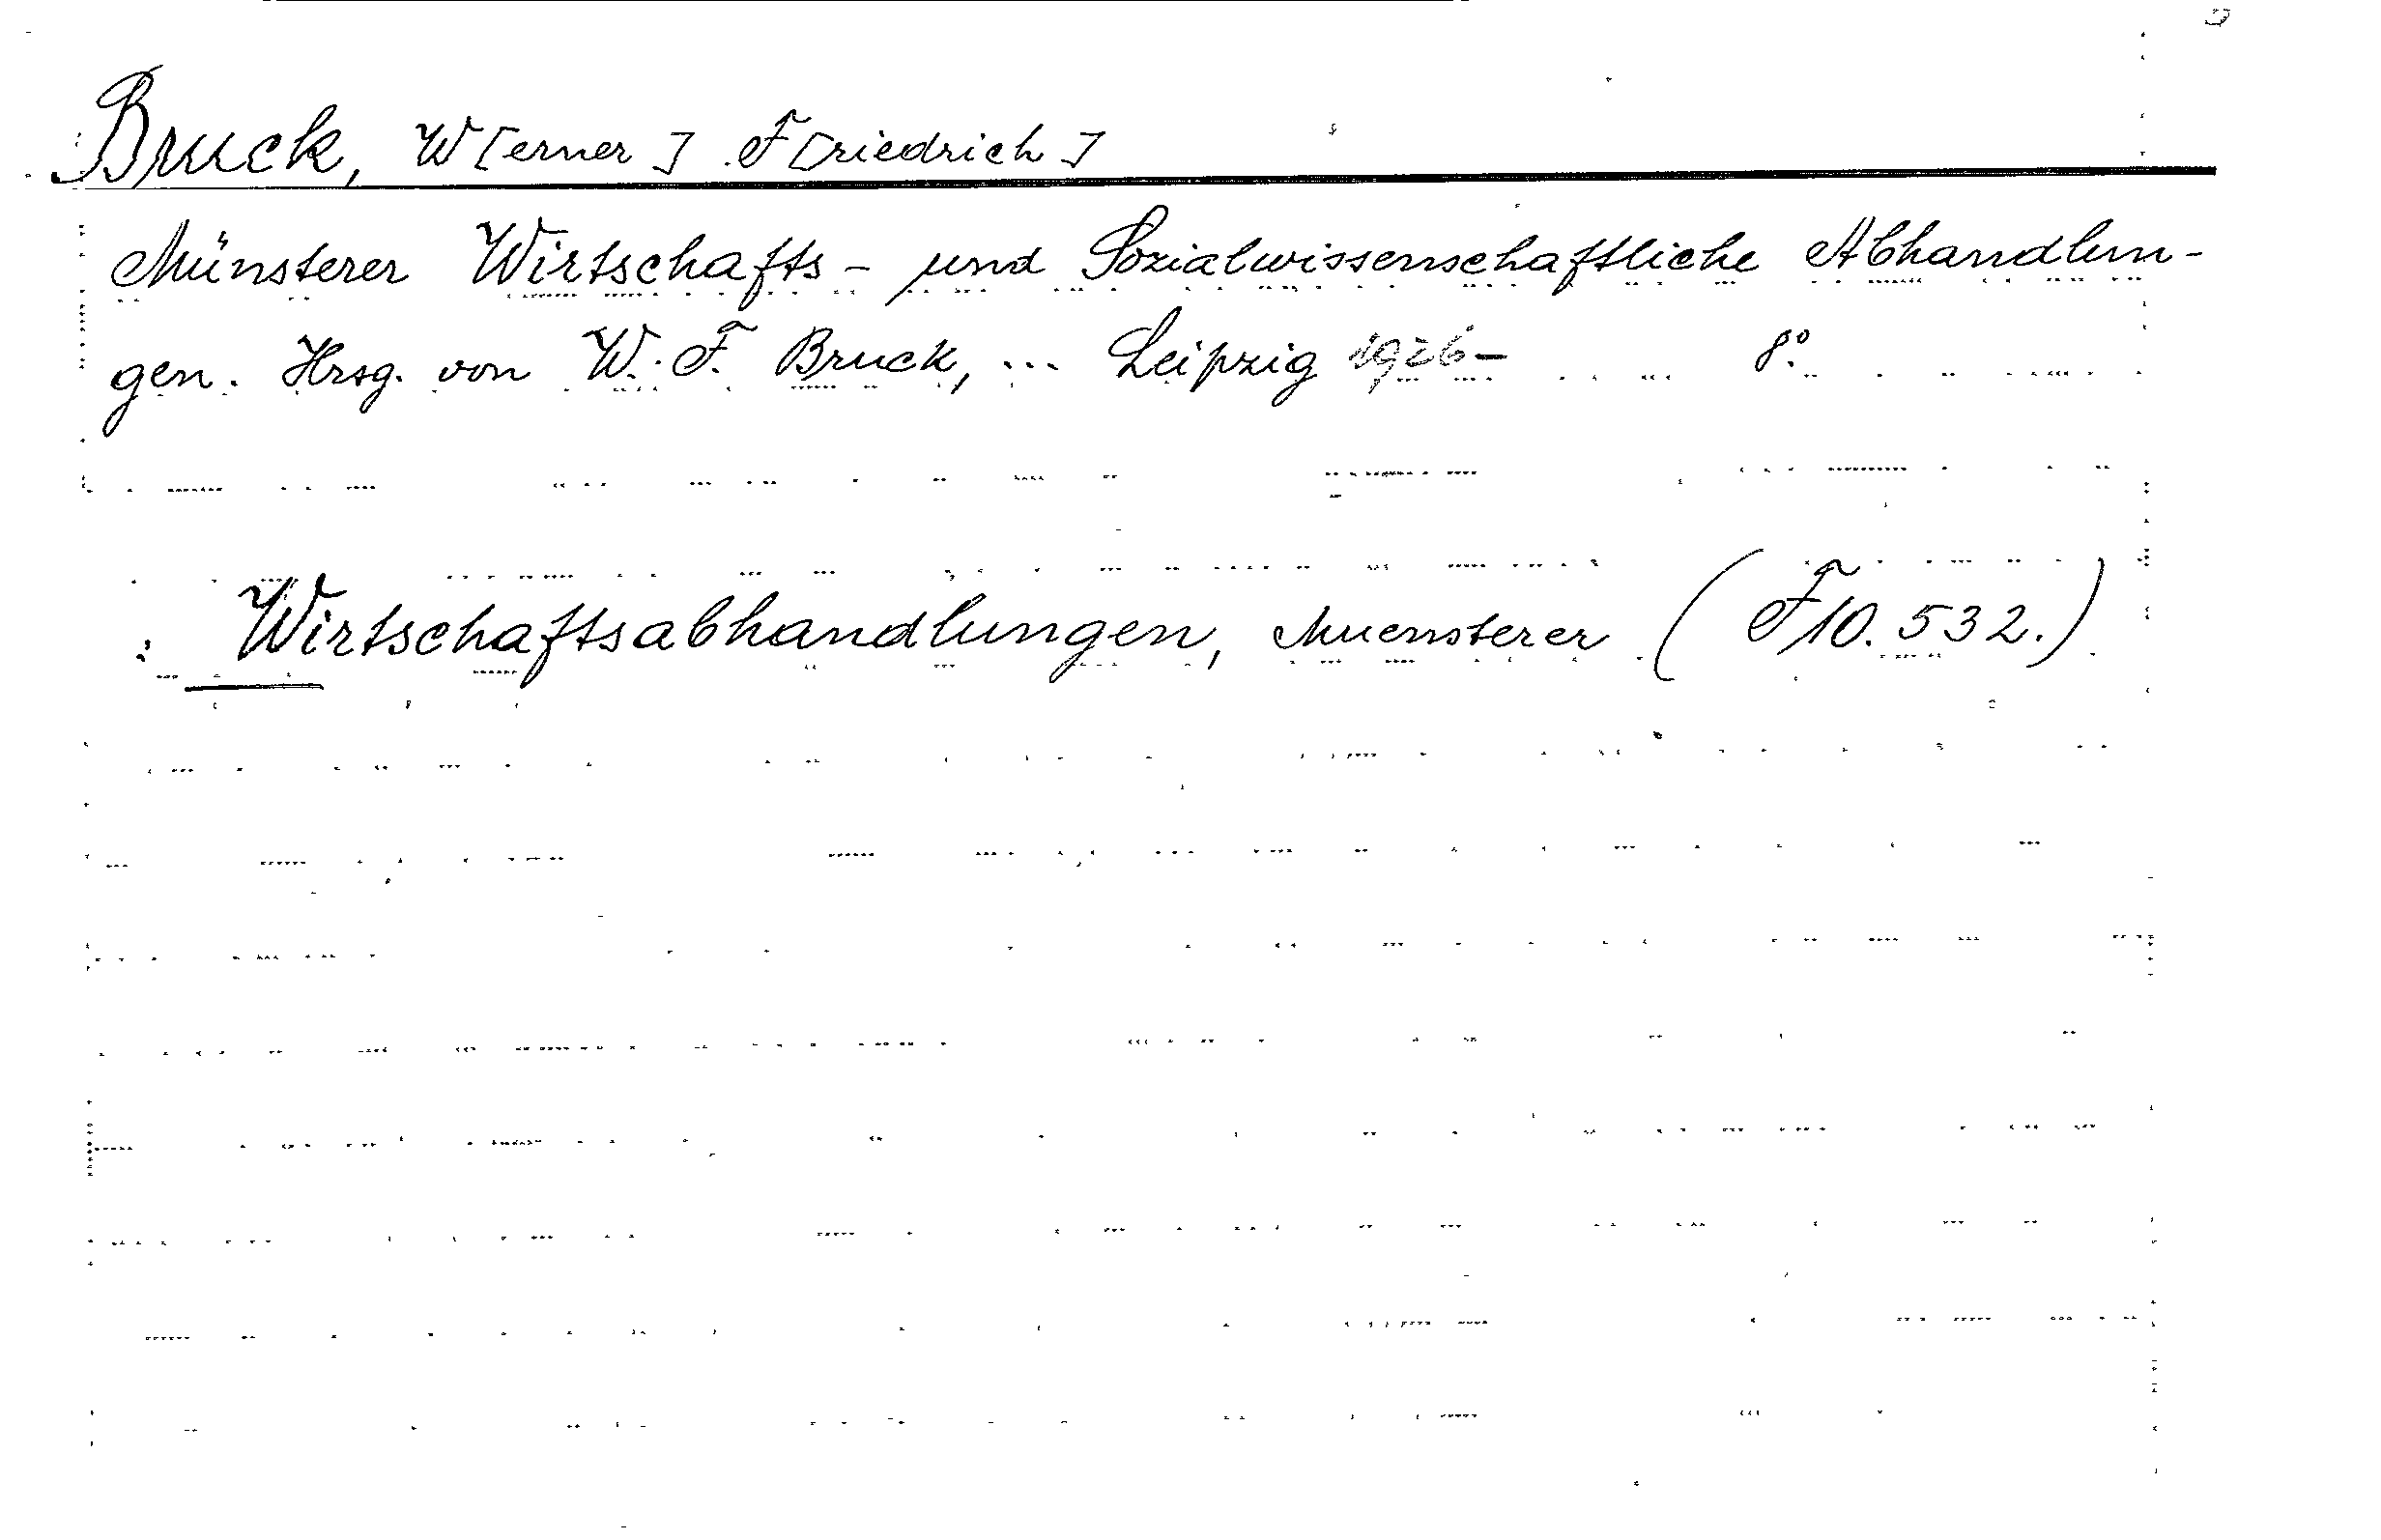 Bruck, W[erner] F[riedrich]
Münsterer Wirtschafts- und Sozialwissenschaftliche Abhandlun-
gen. Hrsg. von W. F. Bruck, ... Leipzig 1926- 8°.
: Wirtschaftsabhandlungen, Muensterer (F 10. 532.)